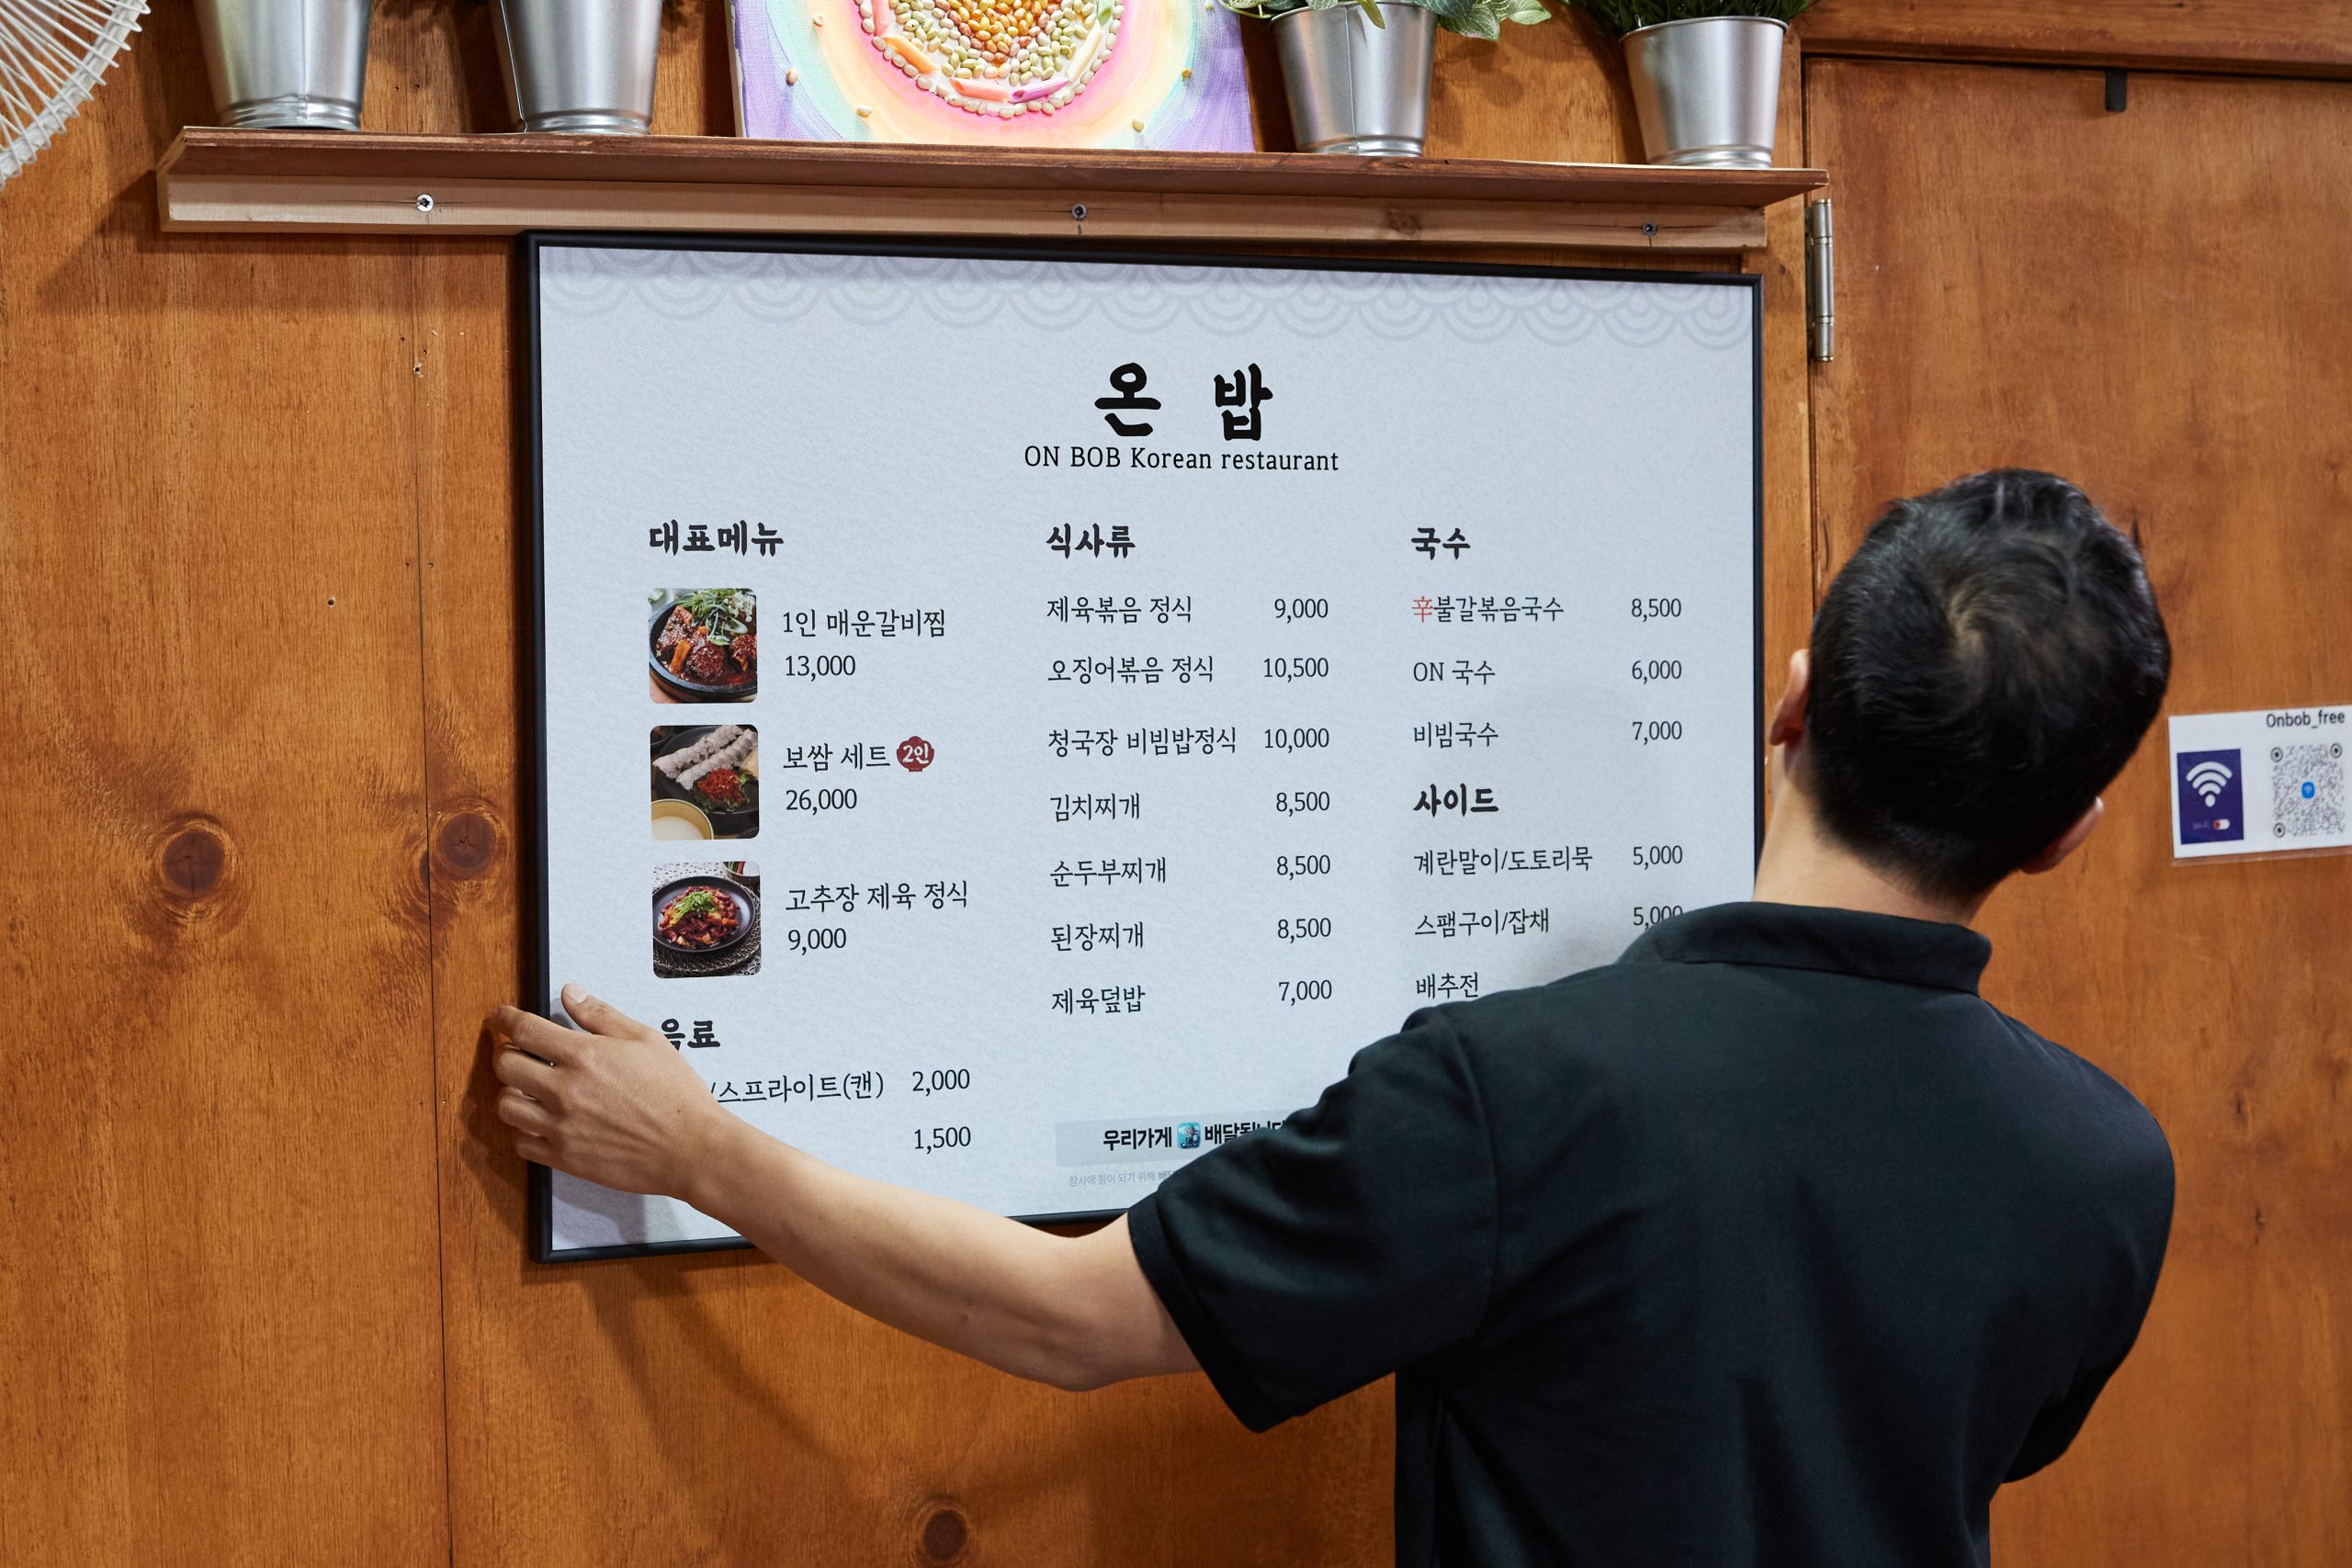 온 밥
ON BOB Korean restaurant
대표메뉴
1인 매운갈비찜
13,000
보쌈 세트 2인
26,000
고추장 제육 정식
9,000
음료
/스프라이트(캔) 2,000
1,500
식사류
제육볶음 정식 9,000
오징어볶음 정식 10,500
청국장 비빔밥정식 10,000
김치찌개 8,500
순두부찌개 8,500
된장찌개 8,500
제육덮밥 7,000
국수
辛불갈볶음국수 8,500
ON 국수 6,000
비빔국수 7,000
사이드
계란말이/도토리묵 5,000
스팸구이/잡채 5,000
배추전
우리가게 배달됩니다
장사에 힘이 되기 위해
Onbob_free